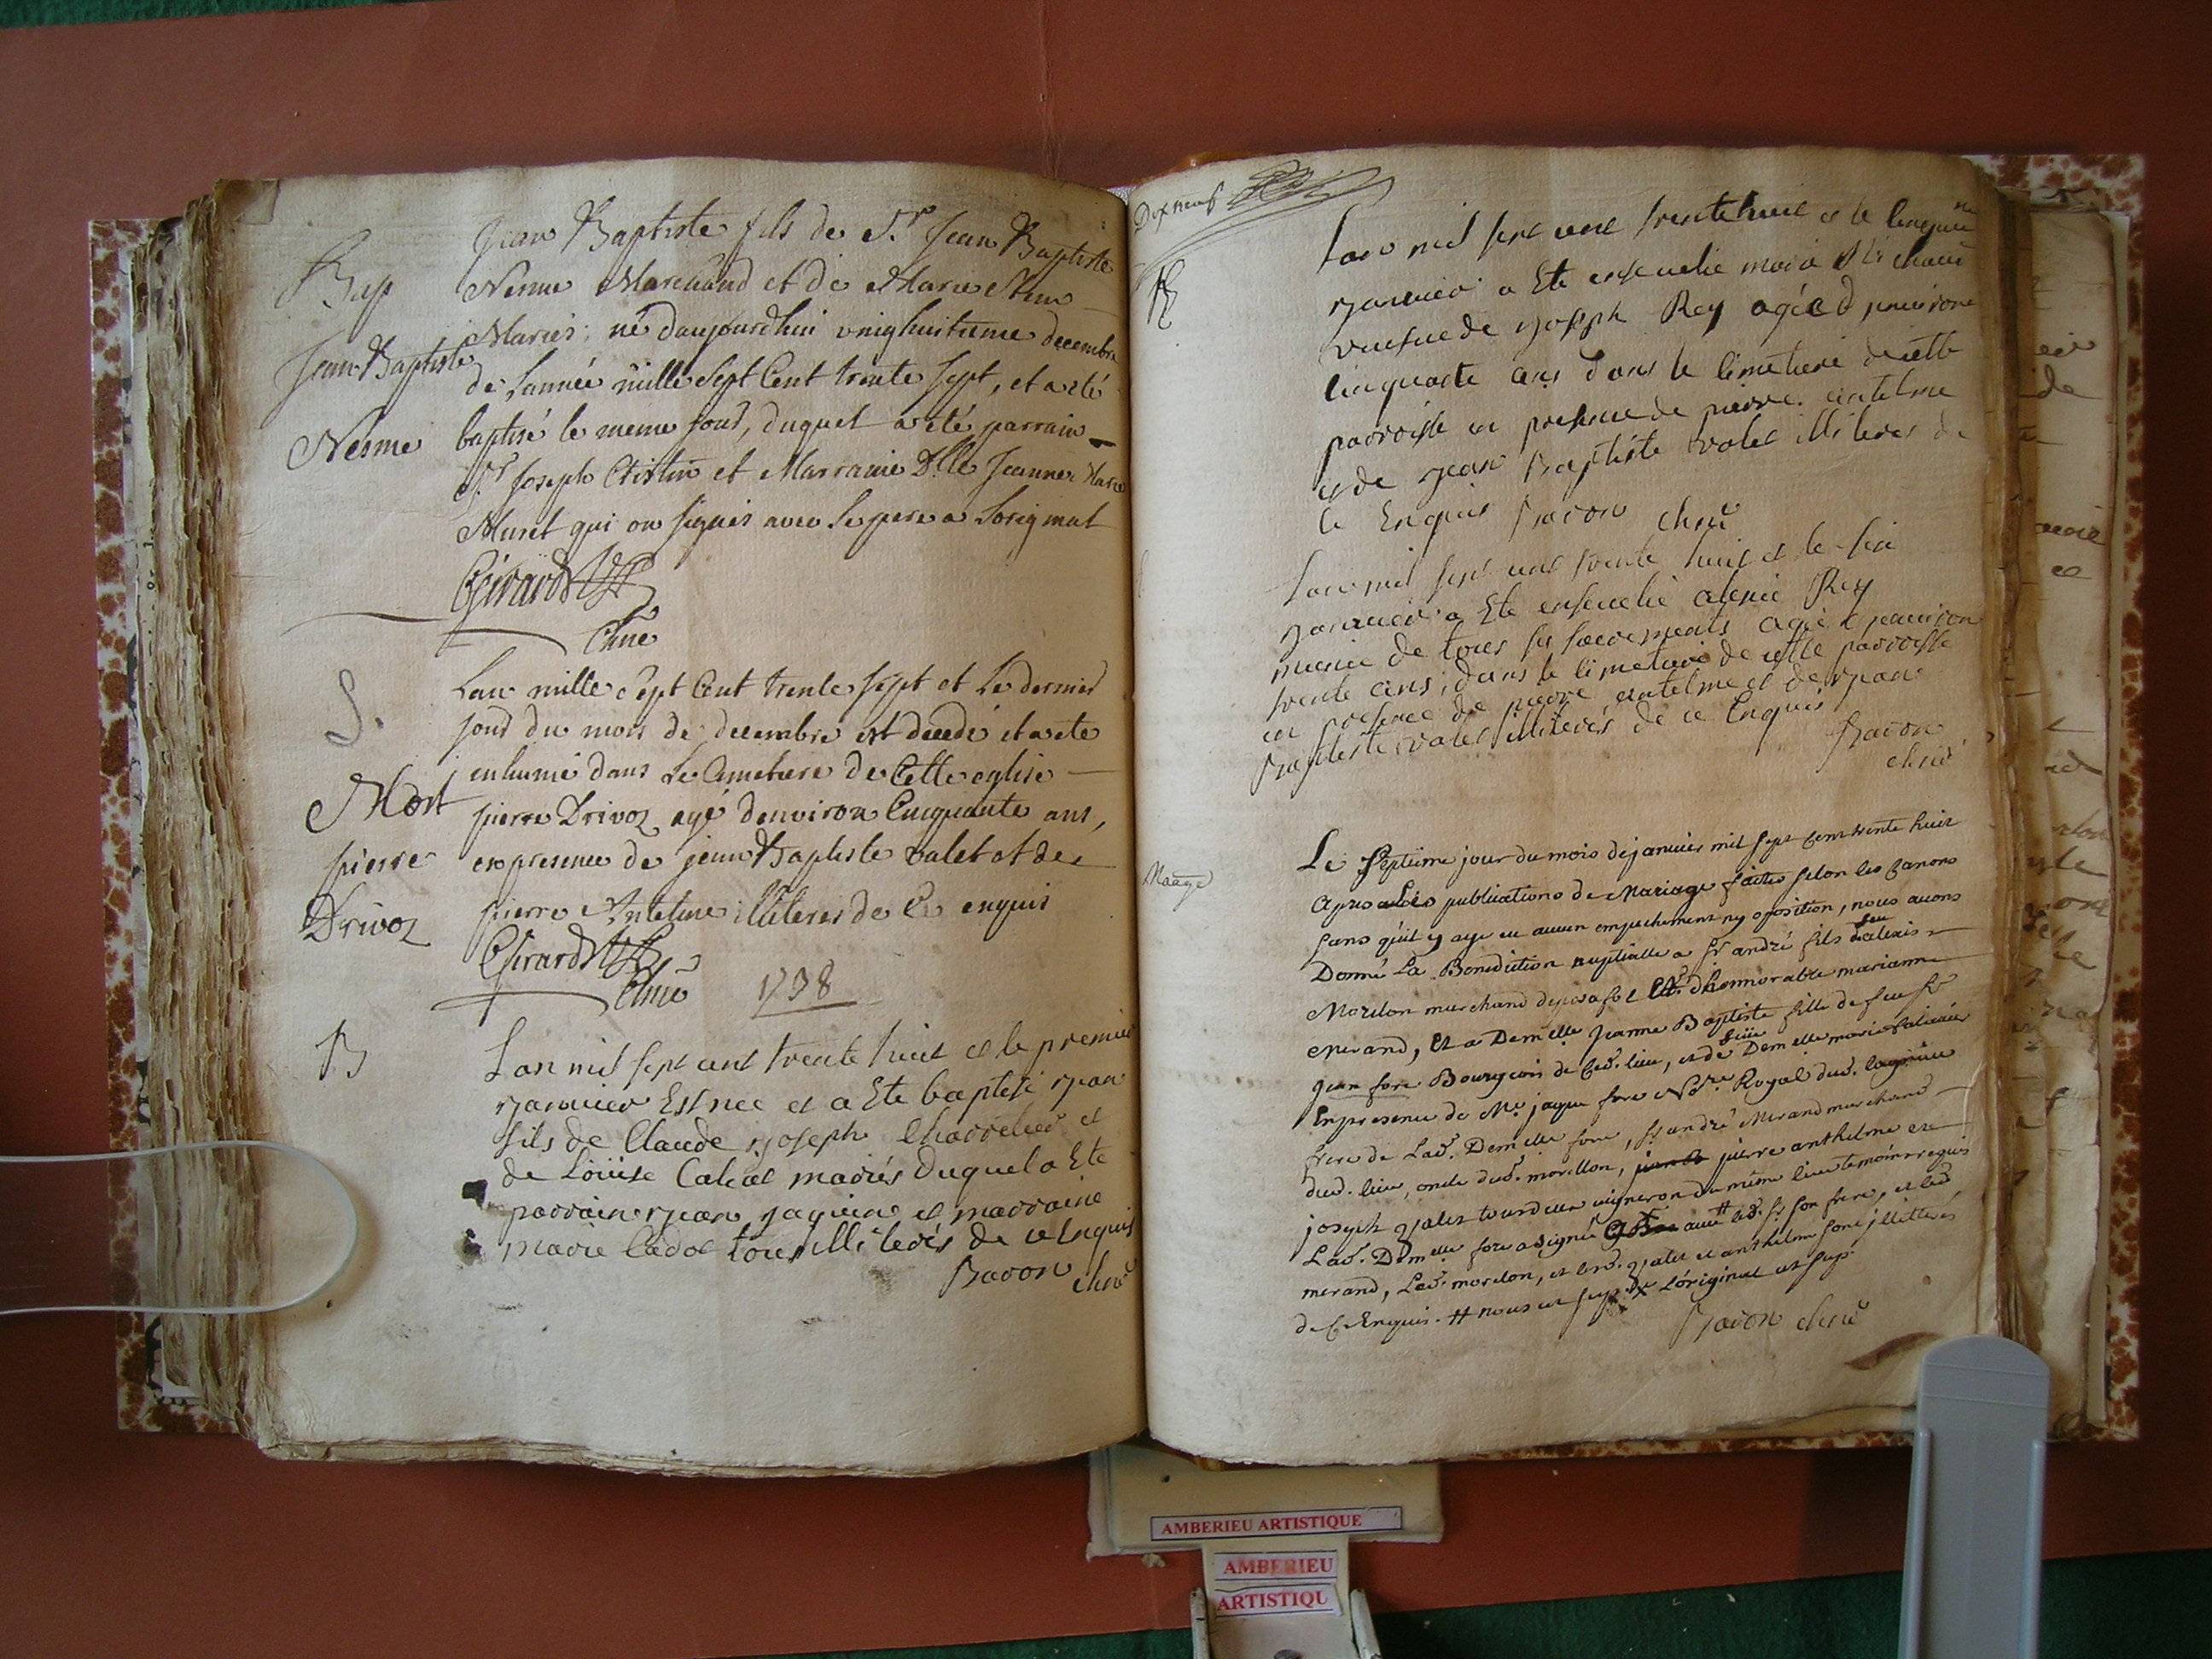 Bap
Jean Baptiste
Nesme
Jean Baptiste fils de S.r Jean Baptiste
Nesme Marchand et de Marie
Mariés; né daujourdhui vnighuitieme decembre
de Lannée mille Sept Cent trente sept, et a eté
baptisé le meme jour, duquel a eté parrain
S.r Joseph Cristin et Marraine D.lle Jeanne Marie
Muret qui on signés avec le pere a Loriginal
Girard
Curé
S.
Mort
pierre
Drivoz
Lan mille Sept Cent trente sept et Le dernier
jour du mois de decembre est decedé et a ete
enhumé dans Le Cimetiere de Cette eglise
pierre Drivoz agé denviron Cinquante ans,
en presence de jean Baptiste valet et de
pierre Antelme illiteres de Ce enquis
Girard
Curé
1738
B
Lan mil sept cent trente huit et le premier
janvier Est nee et a Ete baptisé jean
fils de Claude joseph Charrelier et
de Louise Calcal mariés duquel a Ete
parrain jean jaquier et marraine
marie Cadot tous illiterés de ce Enquis
Baron
Dix neuf
Lan mil sept cent trente huit et le cinquie.me
janvier a Ete ensevelie maria
veusue de joseph Rey agée d environ
cinquante ans dans le cimetiere de cette
parroisse en presence de pierre antelme
et de jean Baptiste valet illiteres de
ce Enquis Baron
Lan mil sept cent trente huit et le six
janvier a Ete ensevelie alexie Rey
munie de tous ses sacrements agée d environ
trente ans, dans le cimetiere de cette parroisse
en presence de pierre antelme et de jean
Baptiste valet illiteres de ce Enquis
Baron
Mariage
Le Septieme jour du mois de janvier mil sept cent trente huit
Apres les publications de Mariage faites selon les Canons
sans qu'il y aye eu aucun empechement ny oposition, nous avons
Donné La Benediction nuptialle a Sr andré fils feu d'alexis
Morelon marchand & d'honnorable marianne
merand, Et a Dem.elle Jeanne Baptiste fille de feu Sr
Jean fore Bourgeois de Ced. lieu, et de feüe Dem.elle marie
En presence de M.e jaque fore No.re Royal dud.
frere de Lad. Dem.elle fore, Sr andré Merand marchand
dud. lieu, oncle dud. morellon, pierre anthelme et
joseph vigneron du même lieu temoins requis
Lad. Dem.elle fore a signé avec # led. Sr son frere, et led
merand, Led. morelon, et lesd. et anthelme sont jllitterés
de C Enquis. # nous L'original
Baron